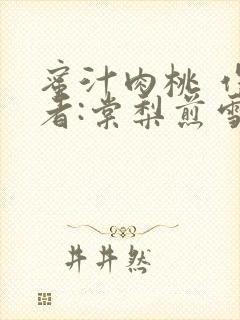 蜜汁肉桃 作
者:棠梨煎雪
井井然